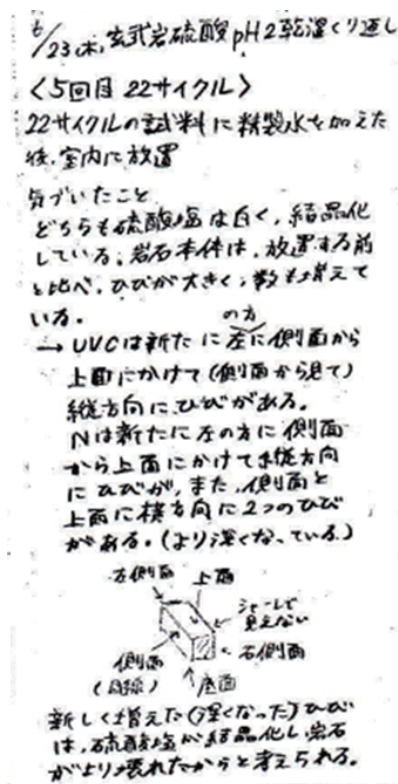 6/23(木) 玄武岩硫酸pH2乾湿くり返し
〈5回目 22サイクル〉
22サイクルの試料に精製水を加えた
後、室内に放置
気づいたこと
どちらも硫酸塩は白く、結晶化
している。岩石本体は、放置する前
と比べ、ひびが大きく、数も増えて
いる。
の方
→ UVCは新たに左に側面から
上面にかけて(側面から見て)
縦方向にひびがある。
Nは新たに左の方に側面
から上面にかけて縦方向
にひびが、また、側面と
上面に横方向に2つのひび
がある。(より深くなっている)
左側面
上面
シャーレで
見えない
右側面
側面
底面
新しく増えた(深くなった)ひび
は、硫酸塩が結晶化し、岩石
がより壊れたからと考えられる。